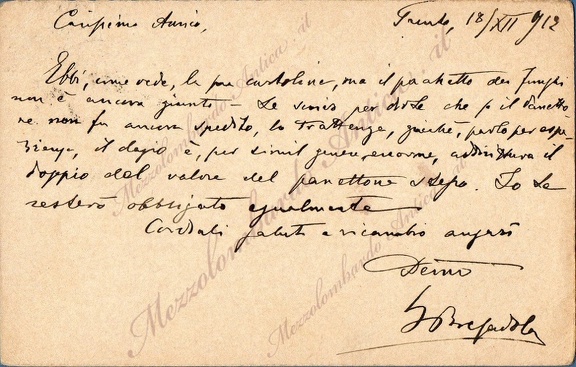 Carissimo Amico, Trento, 18/XII 912
Ebbi, come vede, la sua cartolina, ma il pachetto dei funghi
non è ancora giunto — Le scrivo per dirle che se il panetto-
ne non fu ancora spedito, lo trattenga, giacchè, parlo per espe-
rienza, il dazio è, per simil genere, enorme, addirittura il
doppio del valore del panettone stesso. Io Le
resterò obbligato egualmente
Cordiali saluti e ricambio auguri
Devmo
Bresadola
Mezzolombardo Antica.it
Mezzolombardo Antica.it
Mezzolombardo Antica